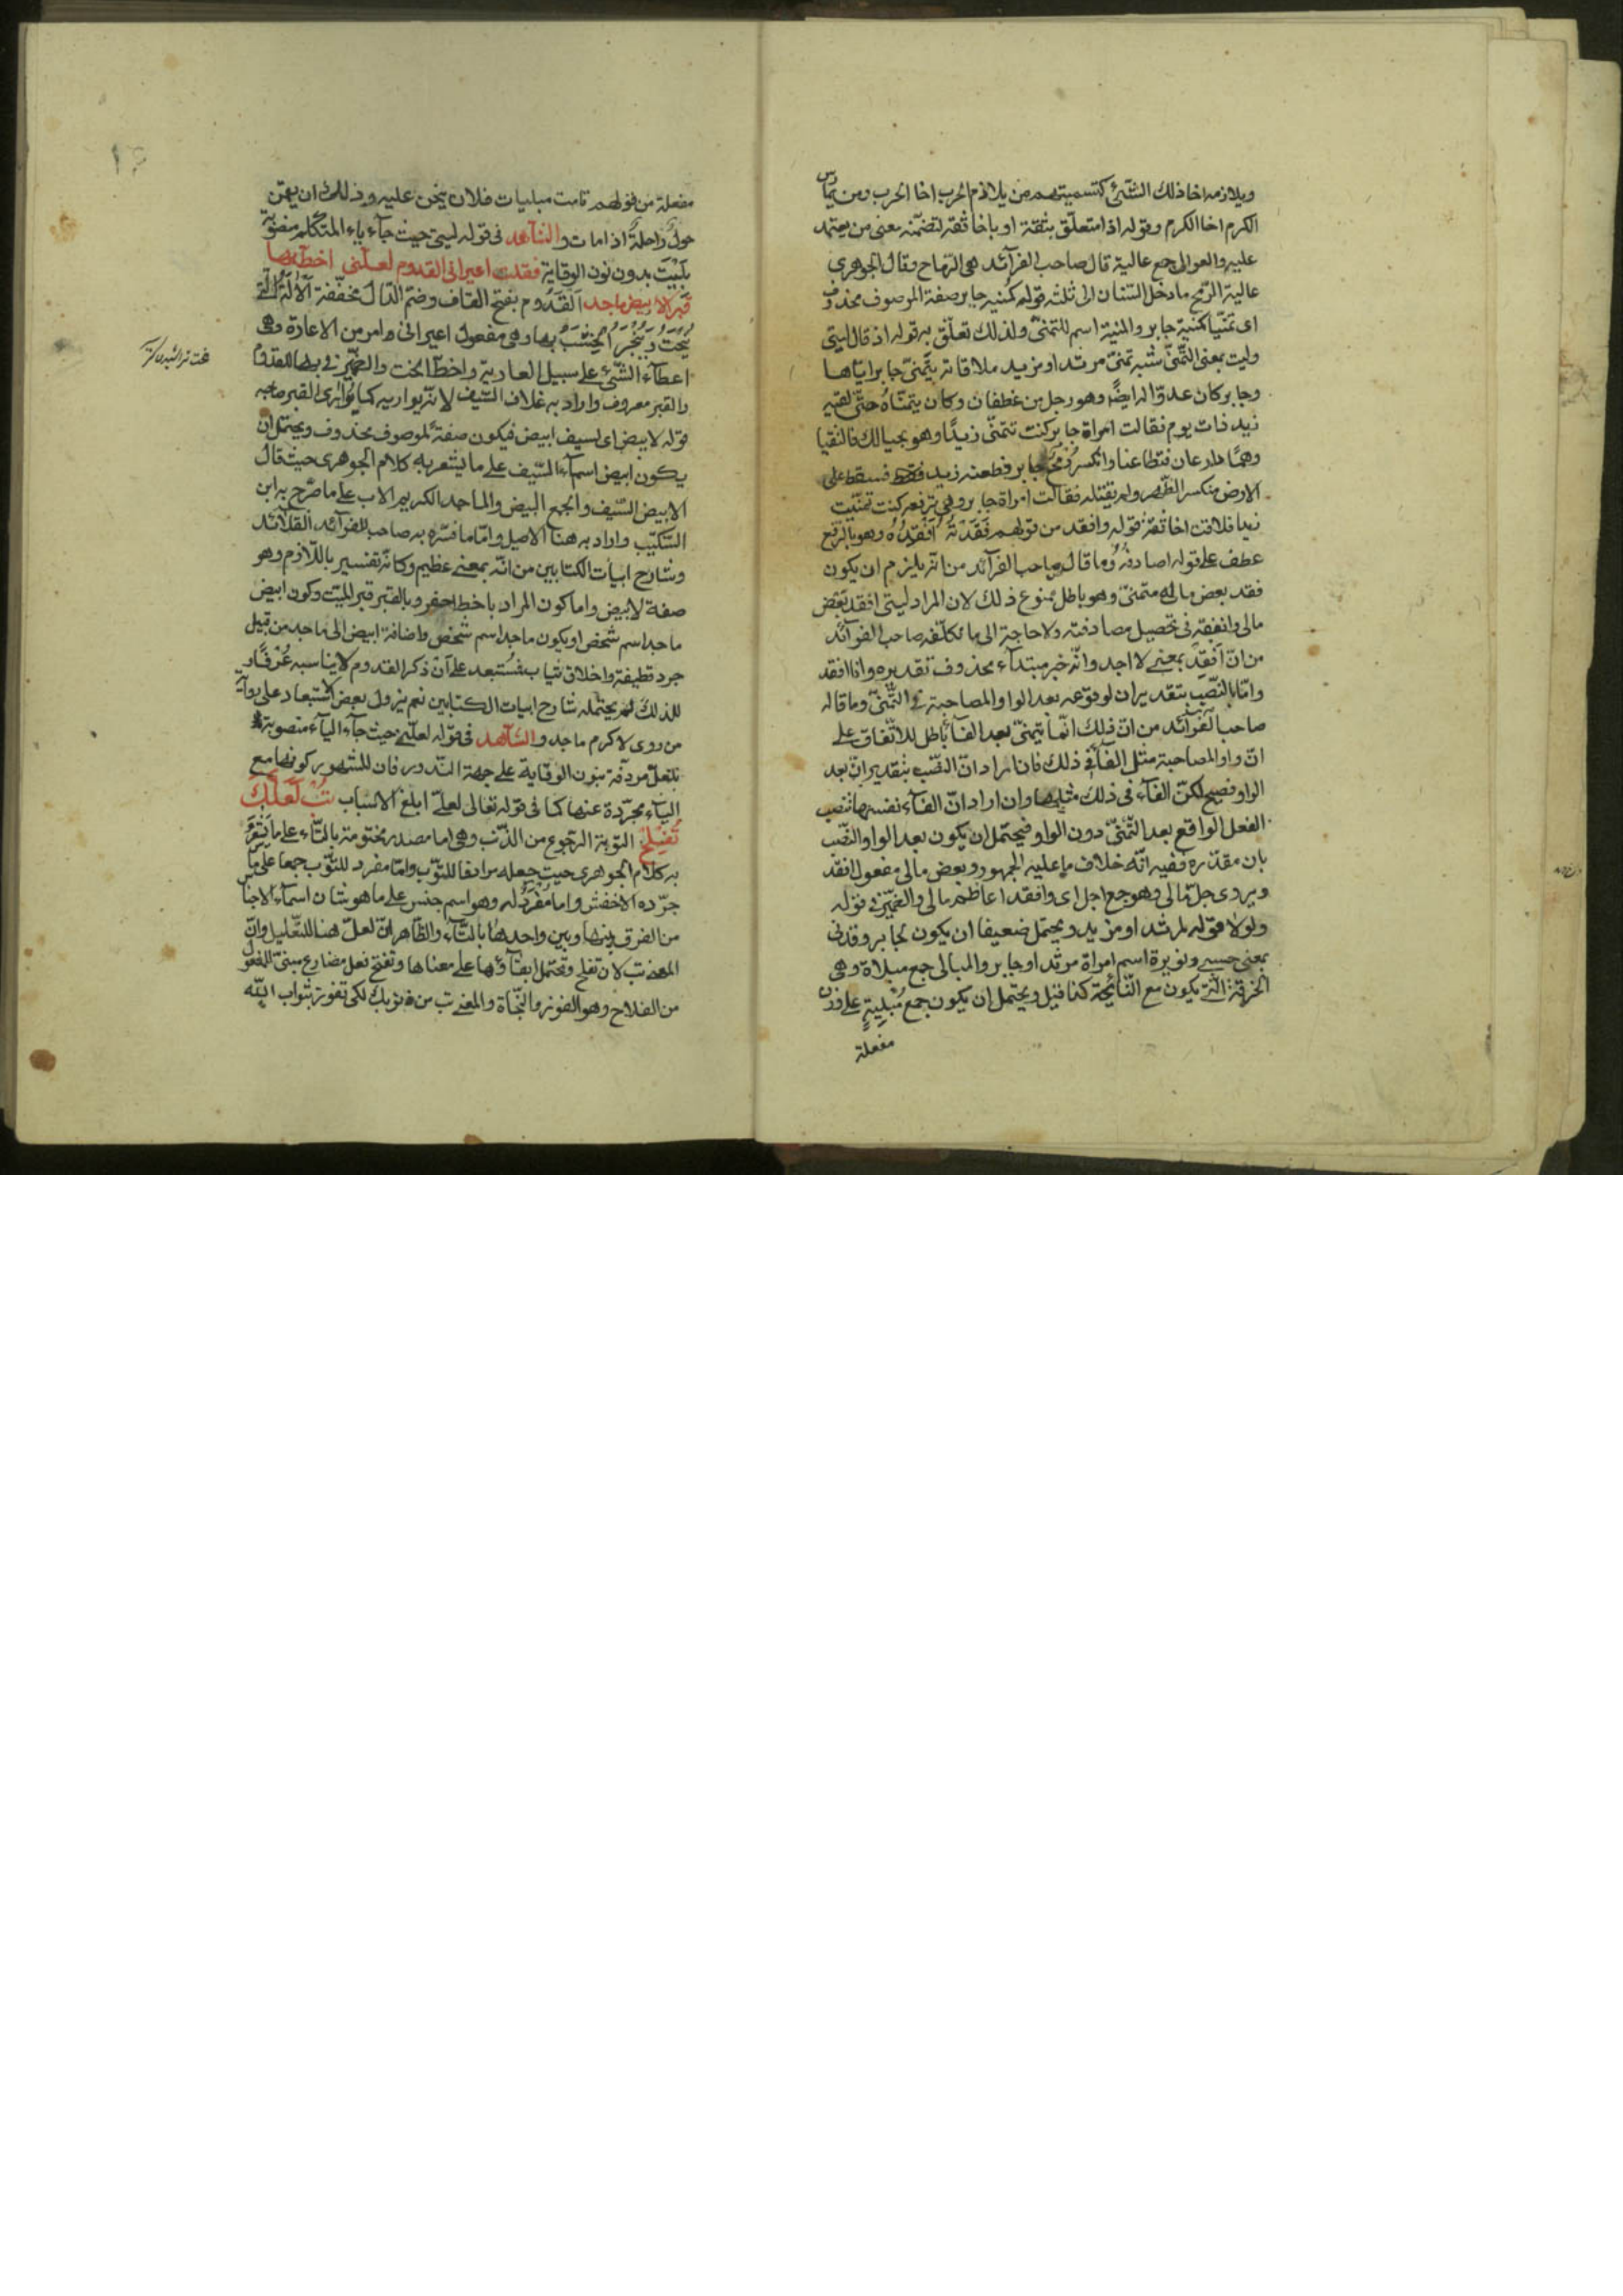 ويلازمه اخا ذلك الشئ كتسميتهم من يلازم الحرب اخا الحرب ومن يمارس
الكرم اخا الكرم وقوله اذا متعلق بثقة او باخا ثقة لتضمنه معنى من يعتمد
عليه والعوالى جمع عالية قال صاحب الفرآئد هى الرماح وقال الجوهرى
عالية الرمح ما دخل السنان الى ثلثه قوله كمنية جابر صفة الموصوف محذوف
اى تمنيا كمنية جابر والمنية اسم للتمنى ولذلك تعلق به قوله اذ قال ليتى
وليت بمعنى التمنى شبه تمنى مرثد او مزيد ملاقاته بتمنى جابر اياها
وجابر كان عدوا له ايضا وهو رجل من غطفان وكان يتمناه حتى لقيه
زيد ذات يوم فقالت امراة جابر كنت تتمنى زيدا وهو بحيالك فالتقيا
وهما دارعان فتطاعنا وانكسر رمح جابر فطعنه زيد فسقط على
الارض منكسر الظهر ولم يقتله فقالت امراة جابر وهى ترفعه كنت تمنيت
زيدا فلاقت اخا ثقة قوله وافقد من قولهم فَقَدْتُهُ اَفْقِدُهُ وهو بالرفع
عطف على قوله اصادفه وما قال صاحب الفرآئد من انه يلزم ان يكون
فقد بعض ماله متمنى وهو باطل ممنوع ذلك لان المراد ليتى افقد بعض
مالى وانفقه فى تحصيل مصادفته ولا حاجة الى ما تكلفه صاحب الفوآئد
من ان افقد بمعنى لا اجد وانه خبر مبتدآء محذوف تقديره وانا افقد
واما بالنصب بتقدير ان لوقوعه بعد الواو المصاحبة فى التمنى وما قاله
صاحب الفرآئد من ان ذلك انما يتمنى بعد الفآء باطل للاتفاق على
ان واو المصاحبة مثل الفآء فى ذلك فان اراد ان النصب بتقدير ان بعد
الواو فصيح لكن الفآء فى ذلك مثلها وان اراد ان الفآء نفسها تنصب
الفعل الواقع بعد التمنى دون الواو فيحتمل ان يكون بعد الواو النصب
بان مقدرة ففيه انه خلاف ما عليه الجمهور وبعض مالى مفعول افقد
ويروى جل مالى وهو جمع اجل اى وافقد اعاظم مالى والضمير فى قوله
ولولا قوله لمرثد او مزيد ويحتمل ضعيفا ان يكون لجابر وقدنى
بمعنى حسبى ونويرة اسم امراة مرثد او جابر والمبالى جمع مبلاة وهى
الخرقة التى يكون مع النآئحة كذا قيل ويحتمل ان يكون جمع مُبْلِيَةٍ على وزن
مفعلة
مفعلة من قولهم قامت مبليات فلان ينحن عليه وذلك ان يقمن
حول راحلة اذا مات والشاهد فى قوله ليتى حيث جآء ياء المتكلم منصوبة
بلَيْتَ بدون نون الوقاية فقلت اعيرانى القدوم لعلنى اخط بها
قبرا لابيض ماجد القَدُوم بفتح القاف وضم الدال مخففة الآلة التى
يُنْحَتُ ويُنْجَرُ الخَشَبُ بها وهى مفعول اعيرانى وامر من الاعارة وهى
اعطآء الشئ على سبيل العارية واخط انحت والضمير فى بها للقدوم
والقبر معروف واراد به غلاف السيف لانه يواريه كما يوارى القبر صاحبه
قوله لابيض اى لسيف ابيض فيكون صفة لموصوف محذوف ويحتمل ان
يكون ابيض اسمآء السيف على ما يشعر به كلام الجوهرى حيث قال
الابيض السيف والجمع البيض والماجد الكريم الاب على ما صرح به ابن
السكيت واراد به هنا الاصيل واما ما فسره به صاحب الفرآئد القلائد
وشارح ابيات الكتابين من انه بمعنى عظيم وكانه تفسير باللازم وهو
صفة لابيض واما كون المراد باخط احفر وبالقبر قبر الميت وكون ابيض
ماجد اسم شخص او يكون ماجد اسم شخص واضافة ابيض الى ماجد من قبيل
جرد قطيفة واخلاق ثياب فمُستبعد على ان ذكر القدوم لا يناسبه عُرْفًا و
لذلك لم يحتمله شارح ابيات الكتابين نعم يزول بعض الاستبعاد على رواية
من روى لاكرم ماجد والشاهد فى قوله لعلنى حيث جآء اليآء منصوبة
بلعل مردفة بنون الوقاية على جهة الندور فان للشهور كونها مع
اليآء مجردة عنها كما فى قوله تعالى لعلى ابلغ الاسباب تُبْ لَعَلَّكَ
تُفْلِحُ التوبة الرجوع من الذنب وهى اما مصدر مختومة بالتآء على ما يشعر
به كلام الجوهرى حيث جعله مرادفا للتوب واما مفرد للتوب جمعا على ما
جرده الاخفش واما مُفْرَدٌ له وهو اسم جنس على ما هو شان اسمآء الاجناس
من الفرق بينها وبين واحدها بالتآء والظاهر ان لعل هنا للتعليل وان
المعنى تب لان تفلح وتحتمل ابقآؤها على معناها وتفلح فعل مضارع مبنى للمفعول
من الفلاح وهو الفوز والنجاة والمعنى تب من ذنوبك لكى تفوز بثواب الله